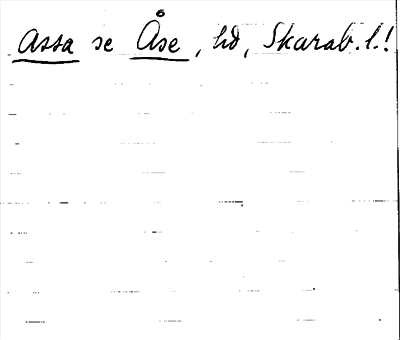 Assa se Åse, hd, Skarab. l.!